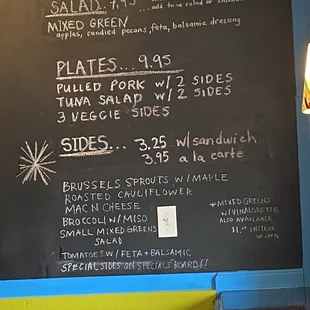 SALAD 7.95 ... add tuna salad or chicken
MIXED GREEN
apples, candied pecans, feta, balsamic dressing
PLATES... 9.95
PULLED PORK W/ 2 SIDES
TUNA SALAD W/ 2 SIDES
3 VEGGIE SIDES
SIDES... 3.25 w/sandwich
3.95 a la carte
BRUSSELS SPROUTS W/MAPLE
ROASTED CAULIFLOWER
MAC N CHEESE
BROCCOLI W/MISO
SMALL MIXED GREENS
SALAD
TOMATOES W/ FETA + BALSAMIC
SPECIAL SIDES ON SPECIALS BOARD!
*MIXED GREENS
W/VINAIGRETTE
ALSO AVAILABLE
INSTEAD
OF CHIPS